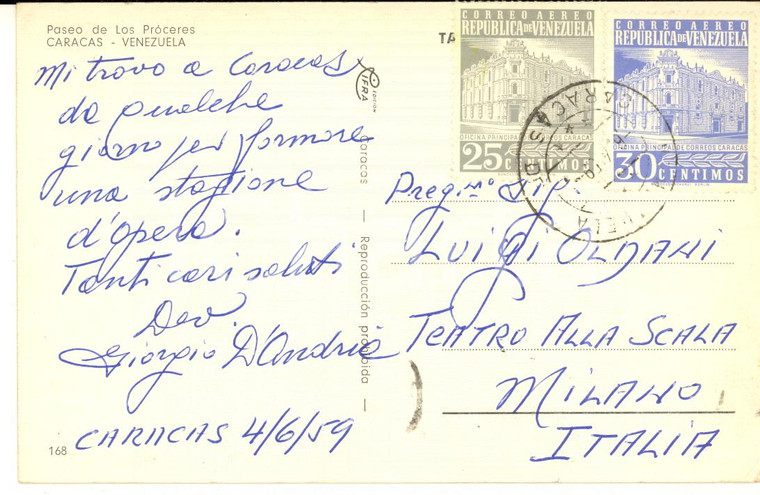 Paseo de Los Próceres
CARACAS - VENEZUELA
TA
CORREO AEREO
REPUBLICA DE VENEZUELA
OFICINA PRINCIPAL DE CORREOS CARACAS
25 CENTIMOS
CORREO AEREO
REPUBLICA DE VENEZUELA
OFICINA PRINCIPAL DE CORREOS CARACAS
30 CENTIMOS
CARACAS
Mi trovo a Caracas
da qualche
giorno per formare
una stagione
d'opera.
Tanti cari saluti
Dev.
Giorgio D'Andria
CARACAS 4/6/59
168
Caracas — Reproducción prohibida —
Preg.mo Sig.
LUIGI OLDANI
TEATRO ALLA SCALA
MILANO
ITALIA